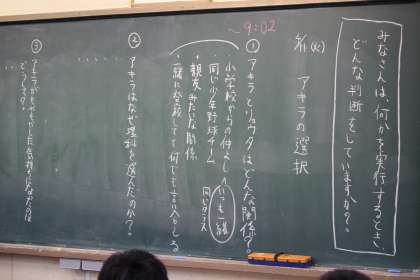 みなさんは、何かを実行するとき、
どんな判断をしていますか？。
私(火)
アキラの選択
～9:02
① アキラとリョウタは、どんな関係？。
・小学校からの仲よし
いつも一緒
同じクラス
・同じ少年野球チーム
・親友みたいな関係
・一緒に登校してて何でも言える
② アキラはなぜ理科を選んだのか？。
③ アキラがもやもやした気持ちになったのは
どうして？。